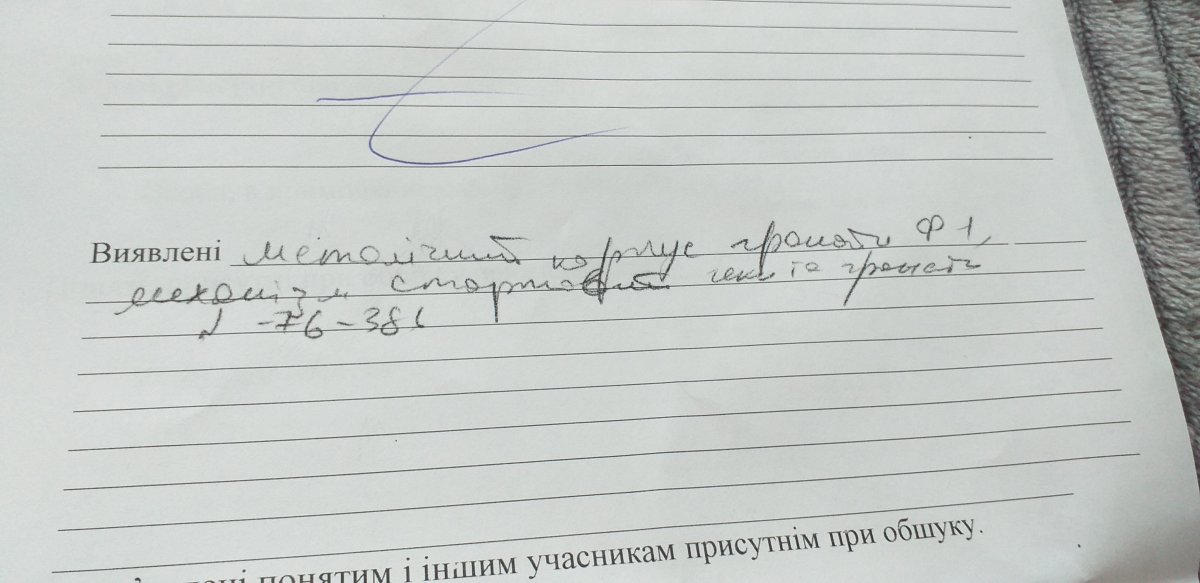 Виявлені металічний корпус гранати Ф 1,
механізм стартовий чеки та гранати
-76-381
понятим і іншим учасникам присутнім при обшуку.